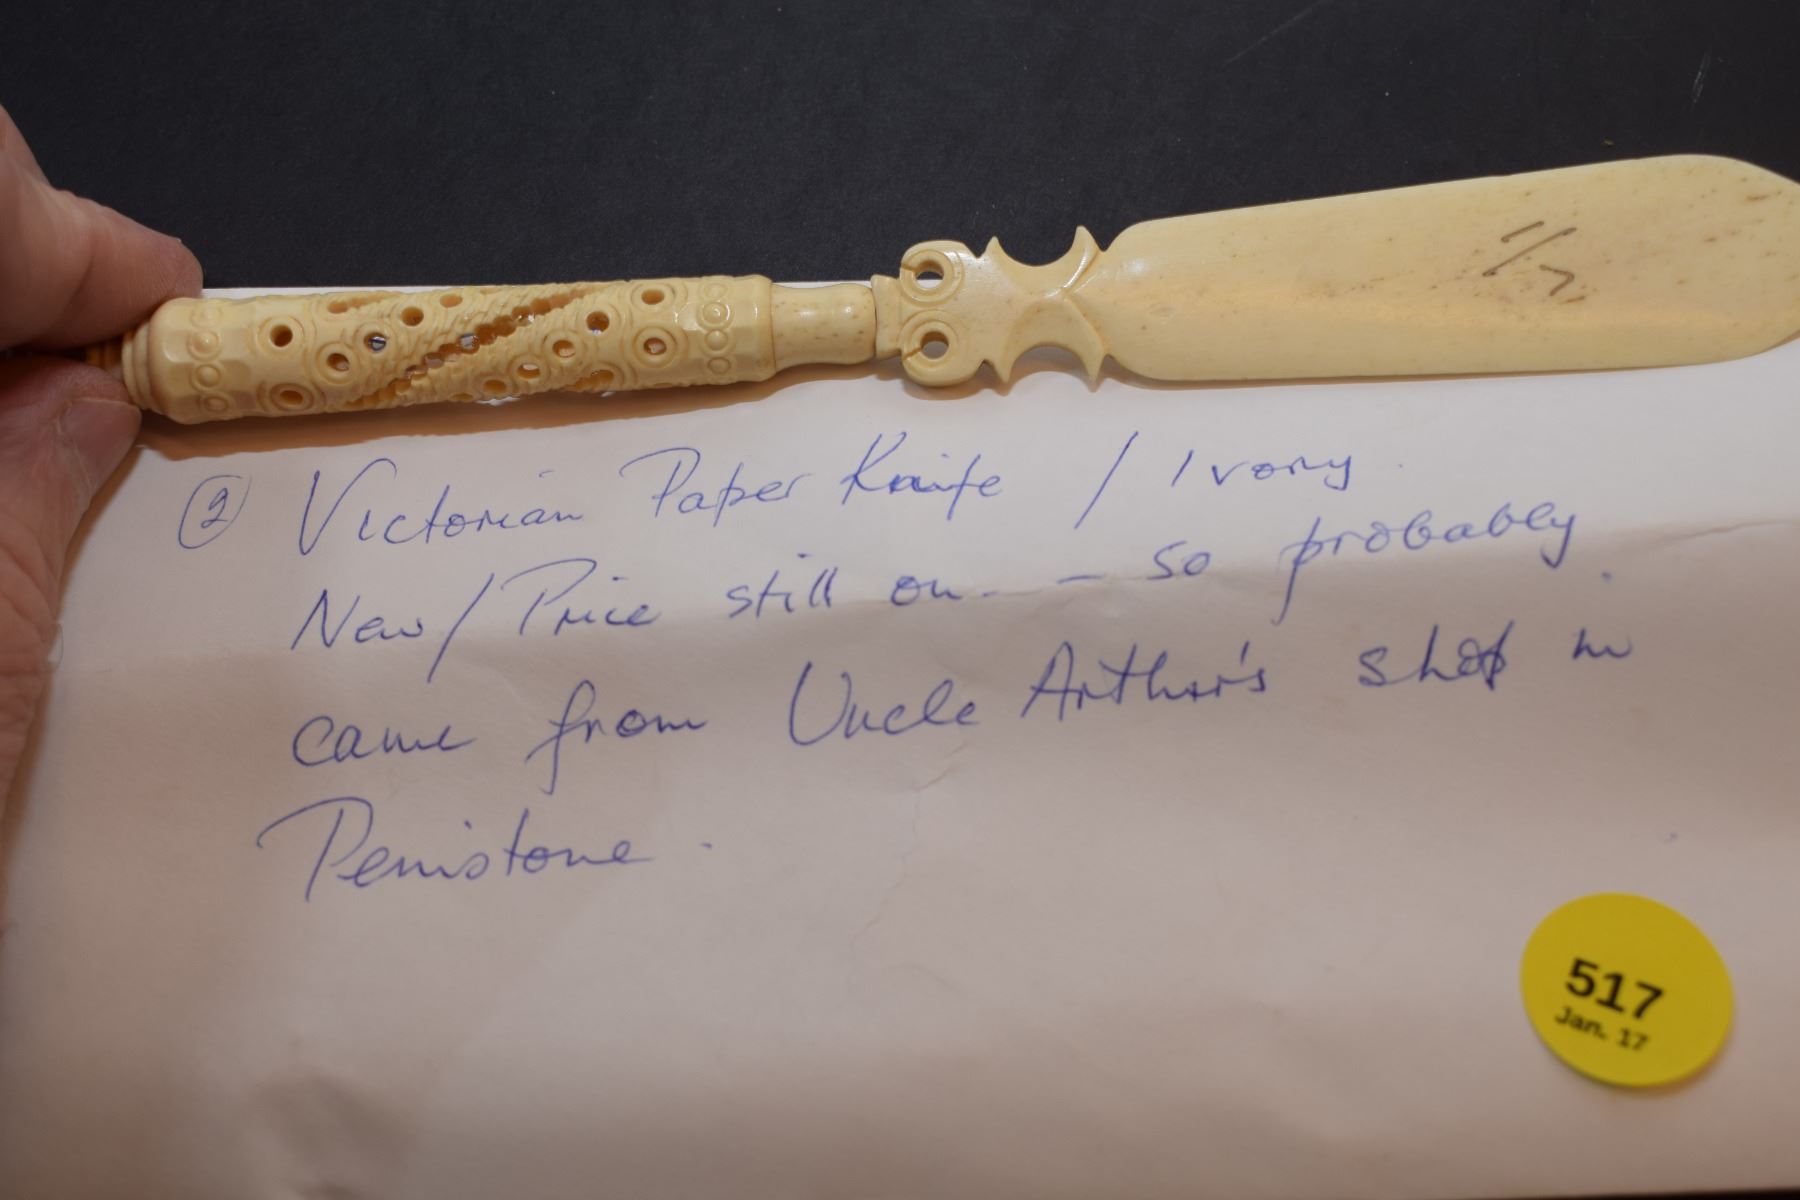 1/7
② Victorian Paper Knife / Ivory.
New / Price still on. – so probably
came from Uncle Arthur's shop in
Penistone.
517
Jan. 17